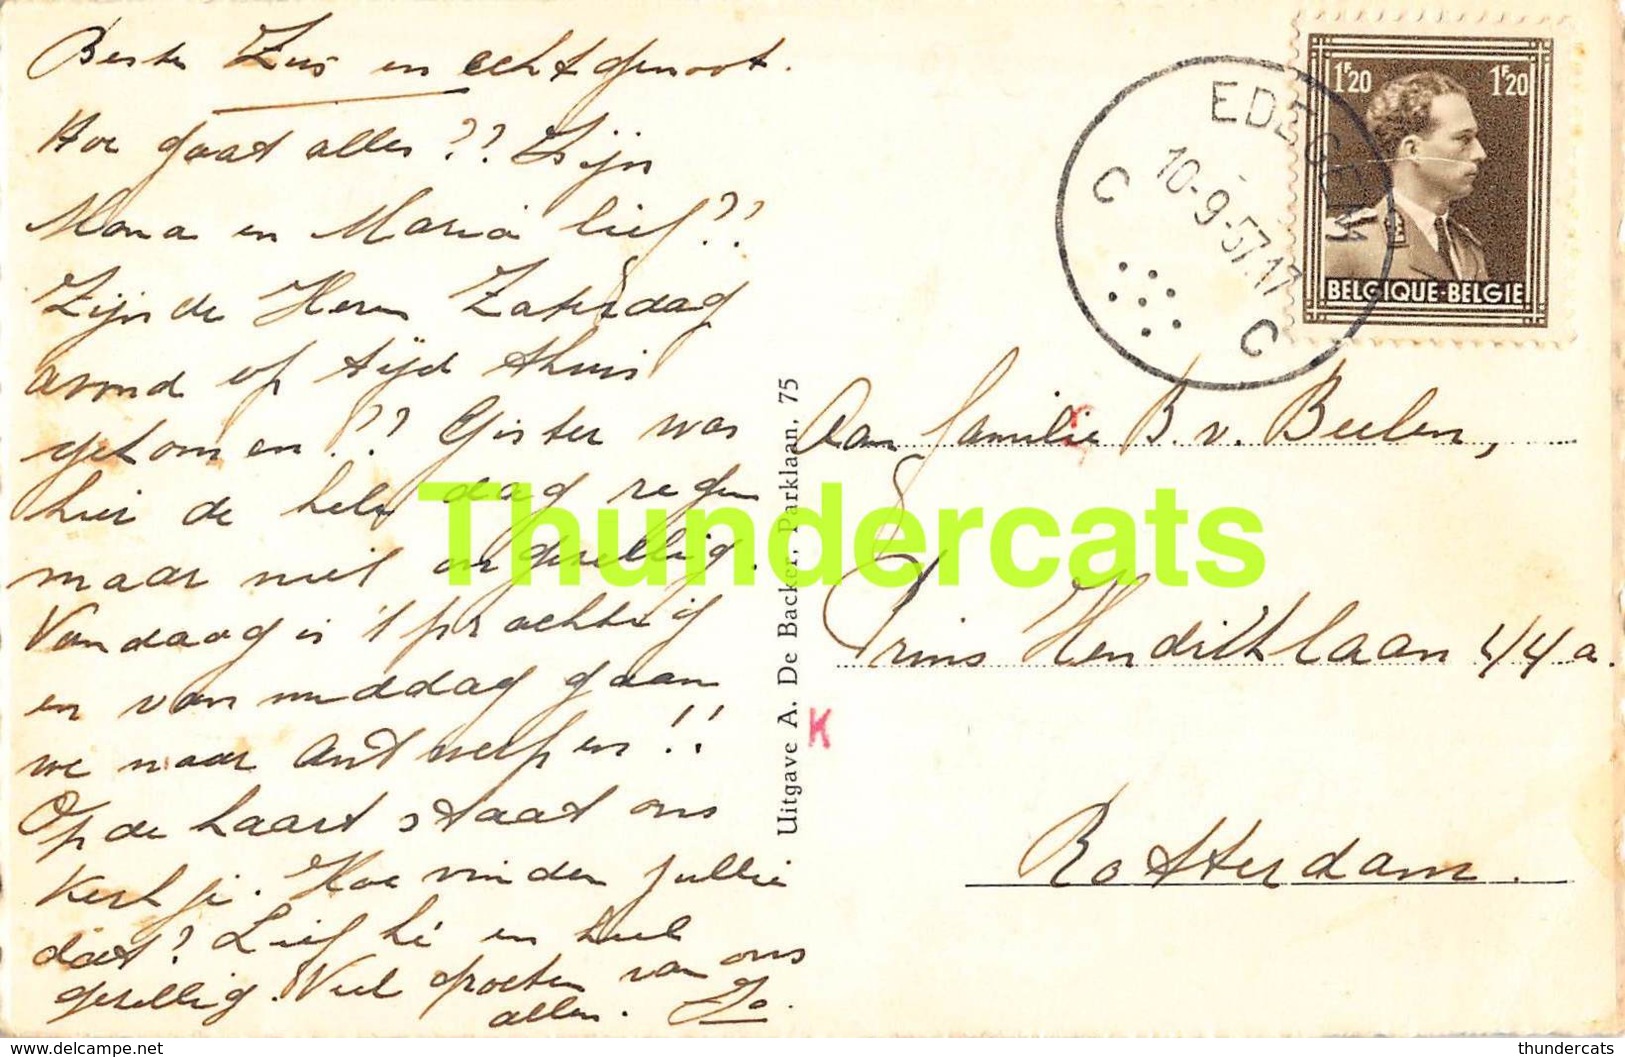 Beste Zus en echtgenoot.
Hoe gaat alles?? Zijn
Mona en Maria lief??
Zijn de Heren Zaterdag
avond op tijd thuis
gekomen?? Gister was
hier de hele dag regen
maar niet ongezellig.
Vandaag is 't prachtig
en van middag gaan
we naar Antwerpen!!
Op de kaart staat ons
Kerkje. Hoe vinden jullie
dat? Lief hé en heel
gezellig. Veel groeten van ons
allen. Jo.
Uitgave A. De Backer, Parklaan, 75
K
EDEGEM
10-9-57.17
C C
1F20 1F20
BELGIQUE-BELGIE
Aan familie B. v. Beelen,
Prins Hendriklaan 44a.
Rotterdam.
Thundercats
delcampe.net
thundercats